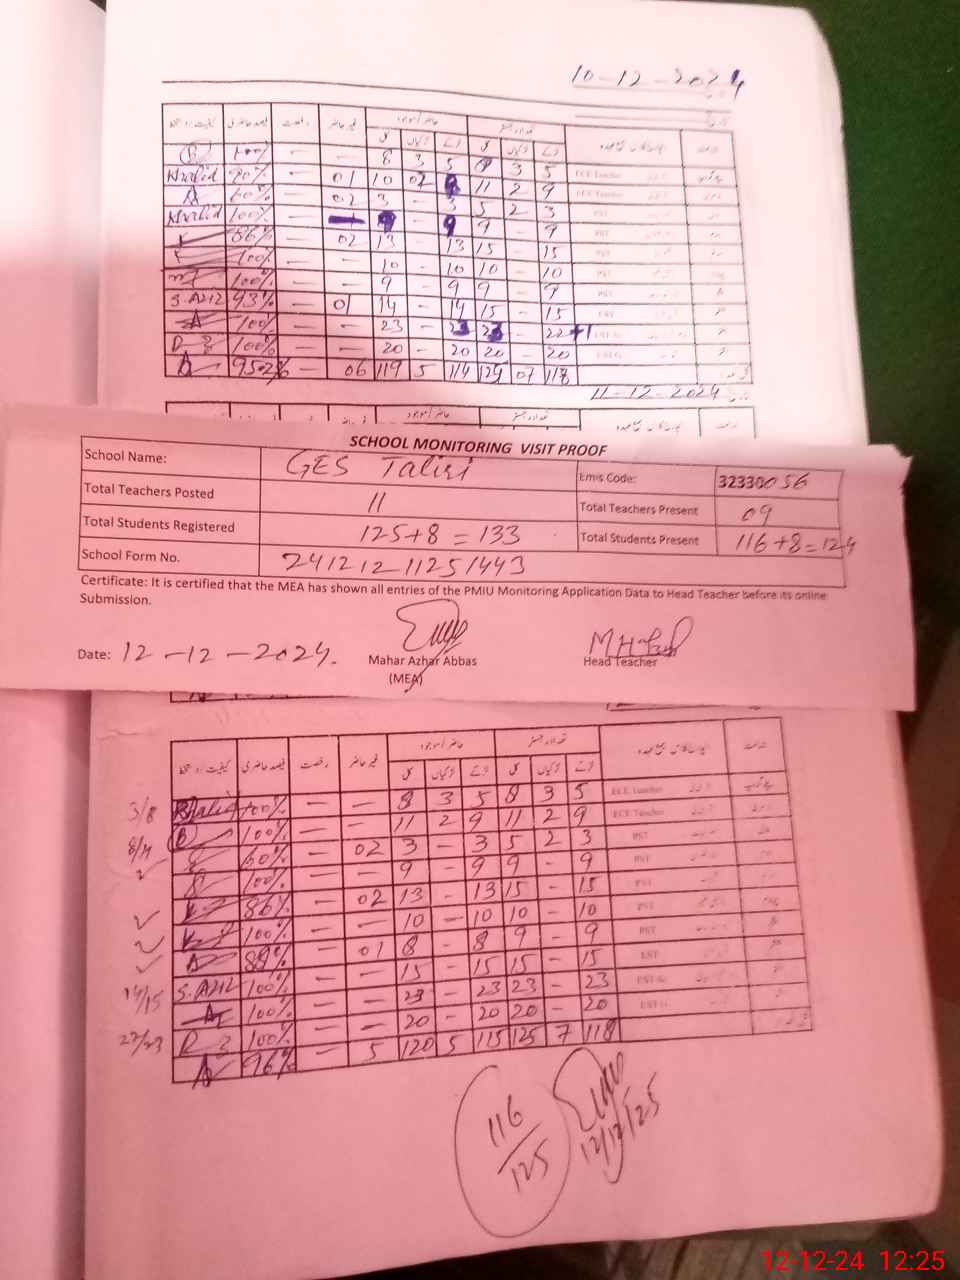 10-12-2024
کیفیت / دستخط فیصد حاضری رخصت غیر حاضر حاضر / موجود تعداد رجسٹر
کل لڑکیاں لڑکے کل لڑکیاں لڑکے
100% — — 8 3 5 8 3 5 ECE Teacher
Khalid 90% — 01 10 02 9 11 2 9 ECE Teacher
A 60% — 02 3 - 3 5 2 3 PST
Khalid 100% — 9 - 9 9 - 9 PST
86% — 02 13 - 13 15 - 15 PST
100% — 10 - 10 10 - 10 PST
100% — 9 - 9 9 - 9 PST
S. Aziz 93% — 01 14 - 14 15 - 15 EST
A 100% — — 23 - 23 23 - 22+1
100% — — 20 - 20 20 - 20
95.02% — 06 119 5 114 124 07 118
11-12-2024
SCHOOL MONITORING VISIT PROOF
School Name: GES Taliri Emis Code: 32330056
Total Teachers Posted 11 Total Teachers Present 09
Total Students Registered 125+8=133 Total Students Present 116+8=124
School Form No. 24121211251443
Certificate: It is certified that the MEA has shown all entries of the PMIU Monitoring Application Data to Head Teacher before its online
Submission.
Date: 12-12-2024. Mahar Azhar Abbas Head Teacher
(MEA)
کیفیت / دستخط فیصد حاضری رخصت غیر حاضر حاضر / موجود تعداد رجسٹر
کل لڑکیاں لڑکے کل لڑکیاں لڑکے
3/8 Khalid 100% — — 8 3 5 8 3 5 ECE Teacher
8/11 100% — — 11 2 9 11 2 9 ECE Teacher
✓ 60% — 02 3 - 3 5 2 3 PST
100% — — 9 - 9 9 - 9 PST
✓ 86% — 02 13 - 13 15 - 15 PST
✓ 100% — — 10 - 10 10 - 10 PST
✓ 89% — 01 8 - 8 9 - 9 PST
14/15 S. Aziz 100% — — 15 - 15 15 - 15 EST
100% — — 23 - 23 23 - 23
22/23 100% — — 20 - 20 20 - 20
96% — 5 120 5 115 125 7 118
116/125
12/12/25
12-12-24 12:25